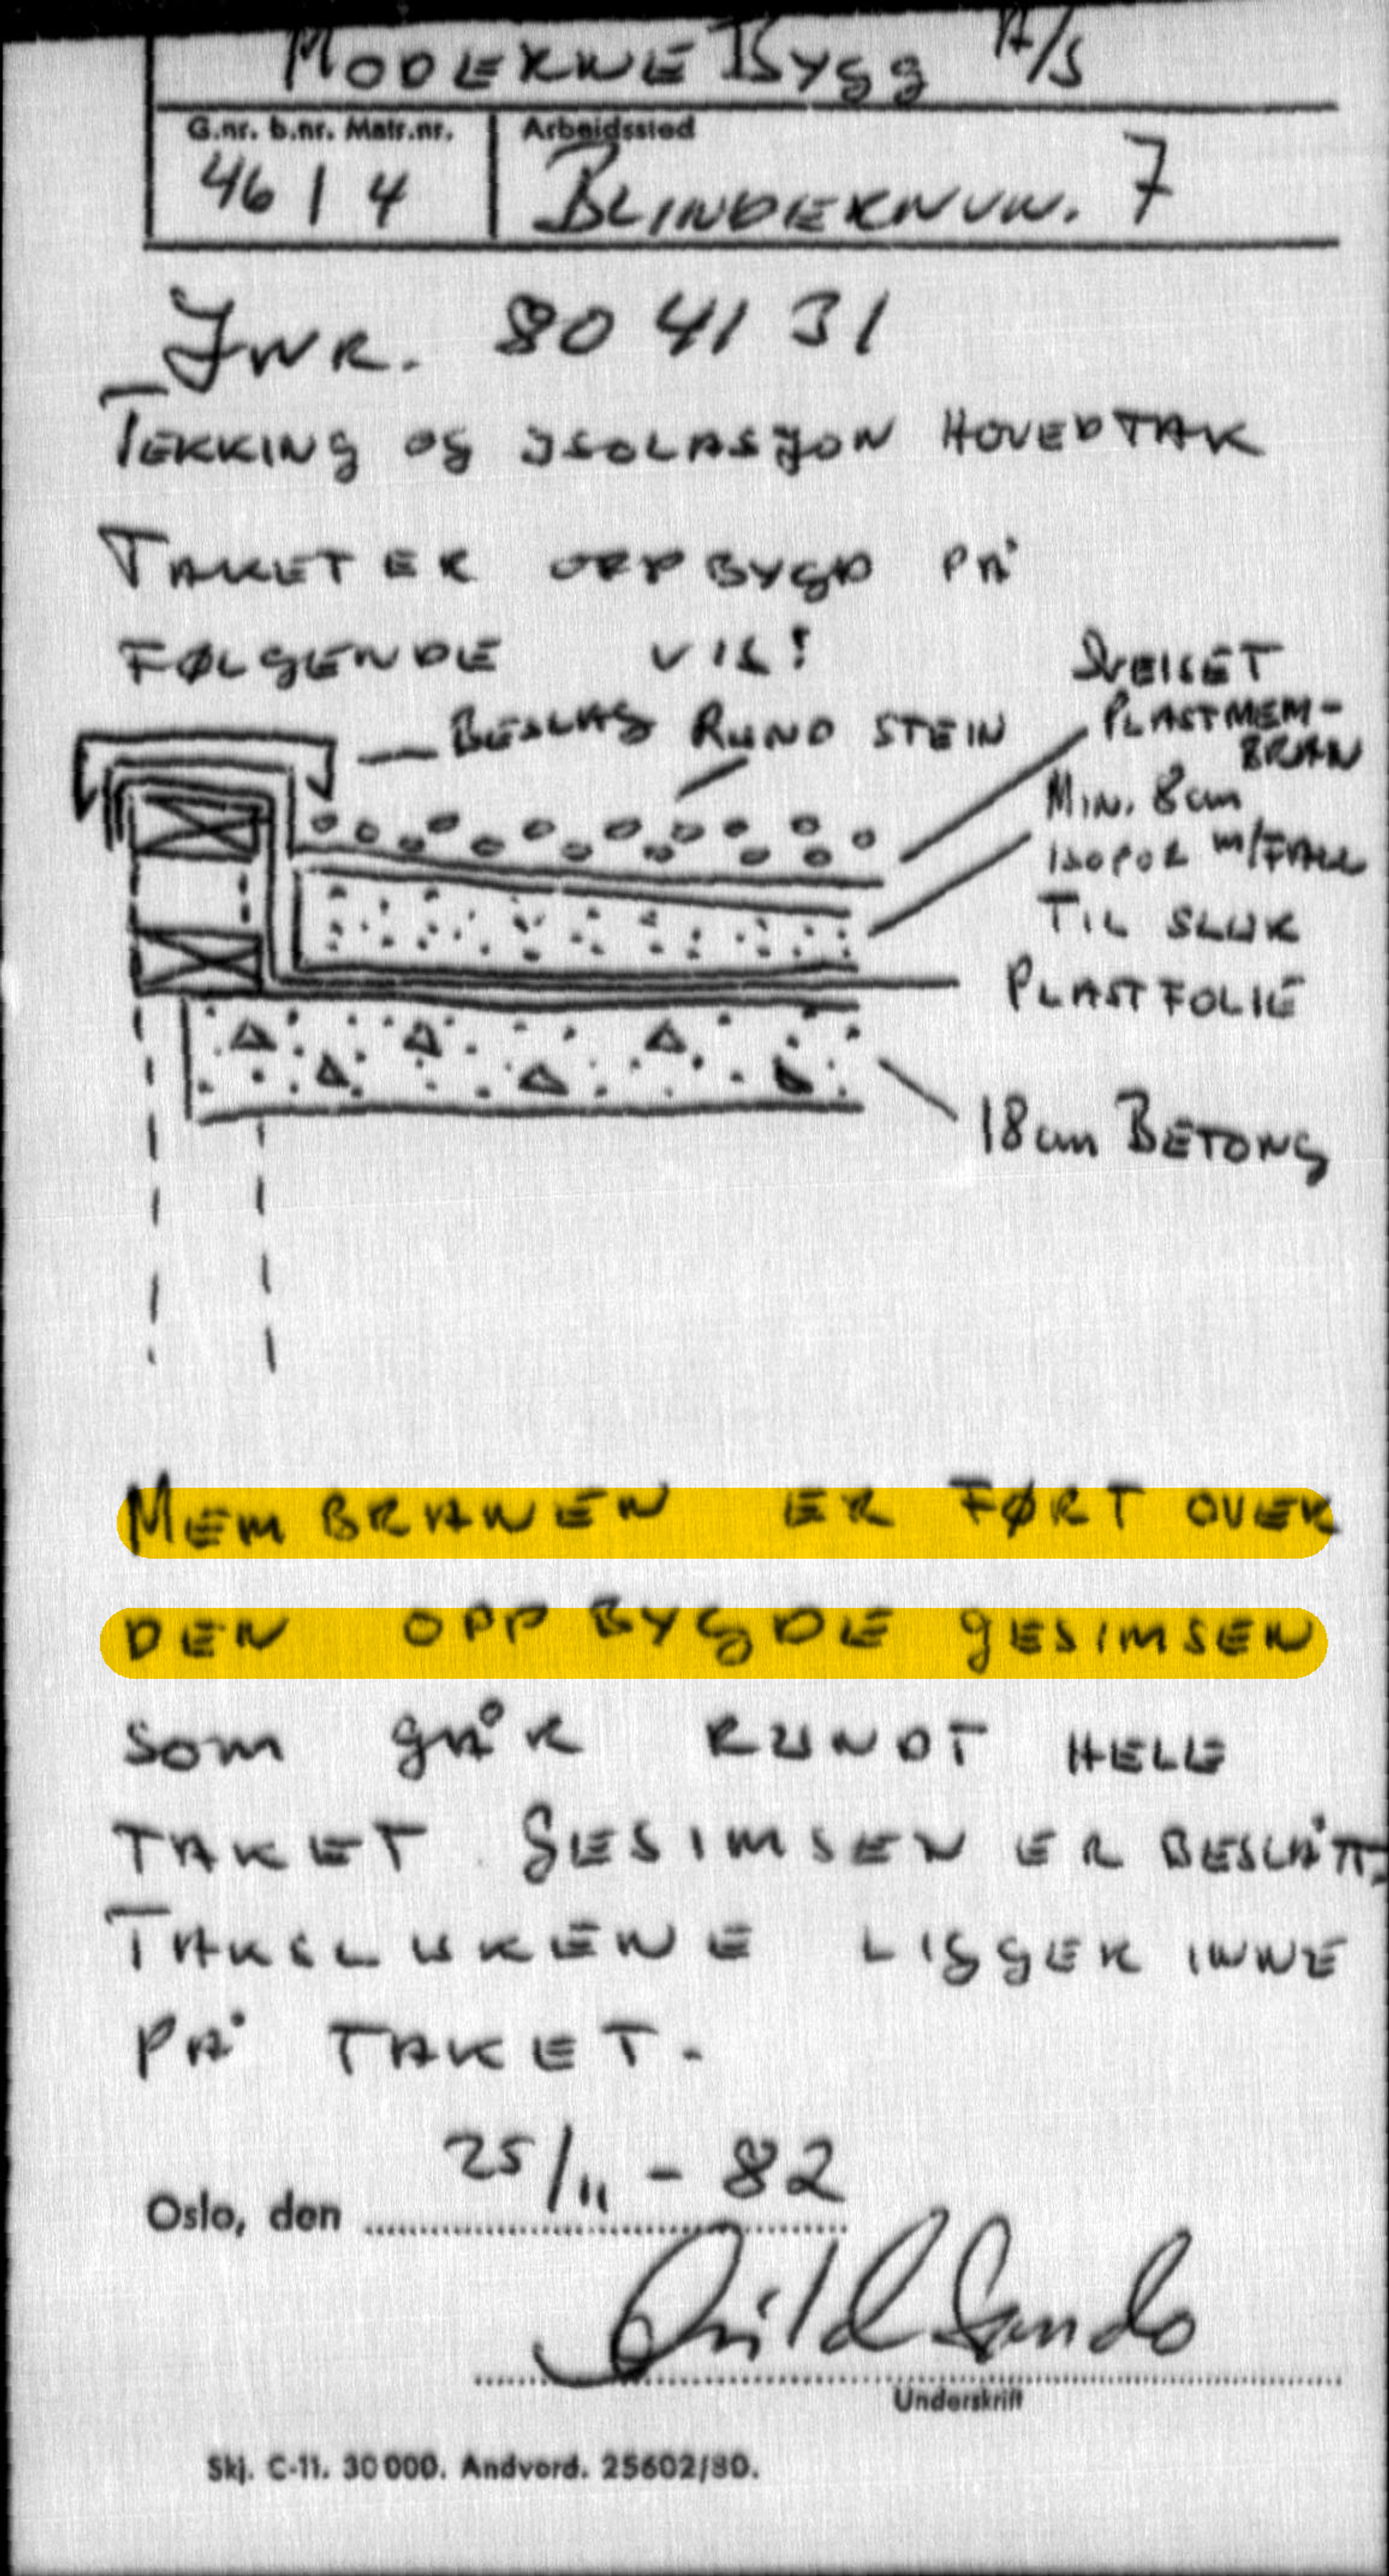 MODERNE BYGG A/S
G.nr. b.nr. Matr.nr.
Arbeidssted
46 | 4
BLINDERNVN. 7
JNR. 804131
TEKKING OG ISOLASJON HOVEDTAK
TAKET ER OPPBYGD PÅ
FØLGENDE VIS:
BESLAG
RUND STEIN
SVEISET
PLASTMEM-
BRAN
MIN. 8cm
ISOPOR M/FALL
TIL SLUK
PLASTFOLIE
18cm BETONG
MEMBRANEN ER FØRT OVER
DEN OPPBYGDE GESIMSEN
SOM GÅR RUNDT HELE
TAKET. GESIMSEN ER BESLÅTT.
TAKSLUKENE LIGGER INNE
PÅ TAKET.
Oslo, den 25/11 - 82
Underskrift
Skj. C-11. 30000. Andvord. 25602/80.